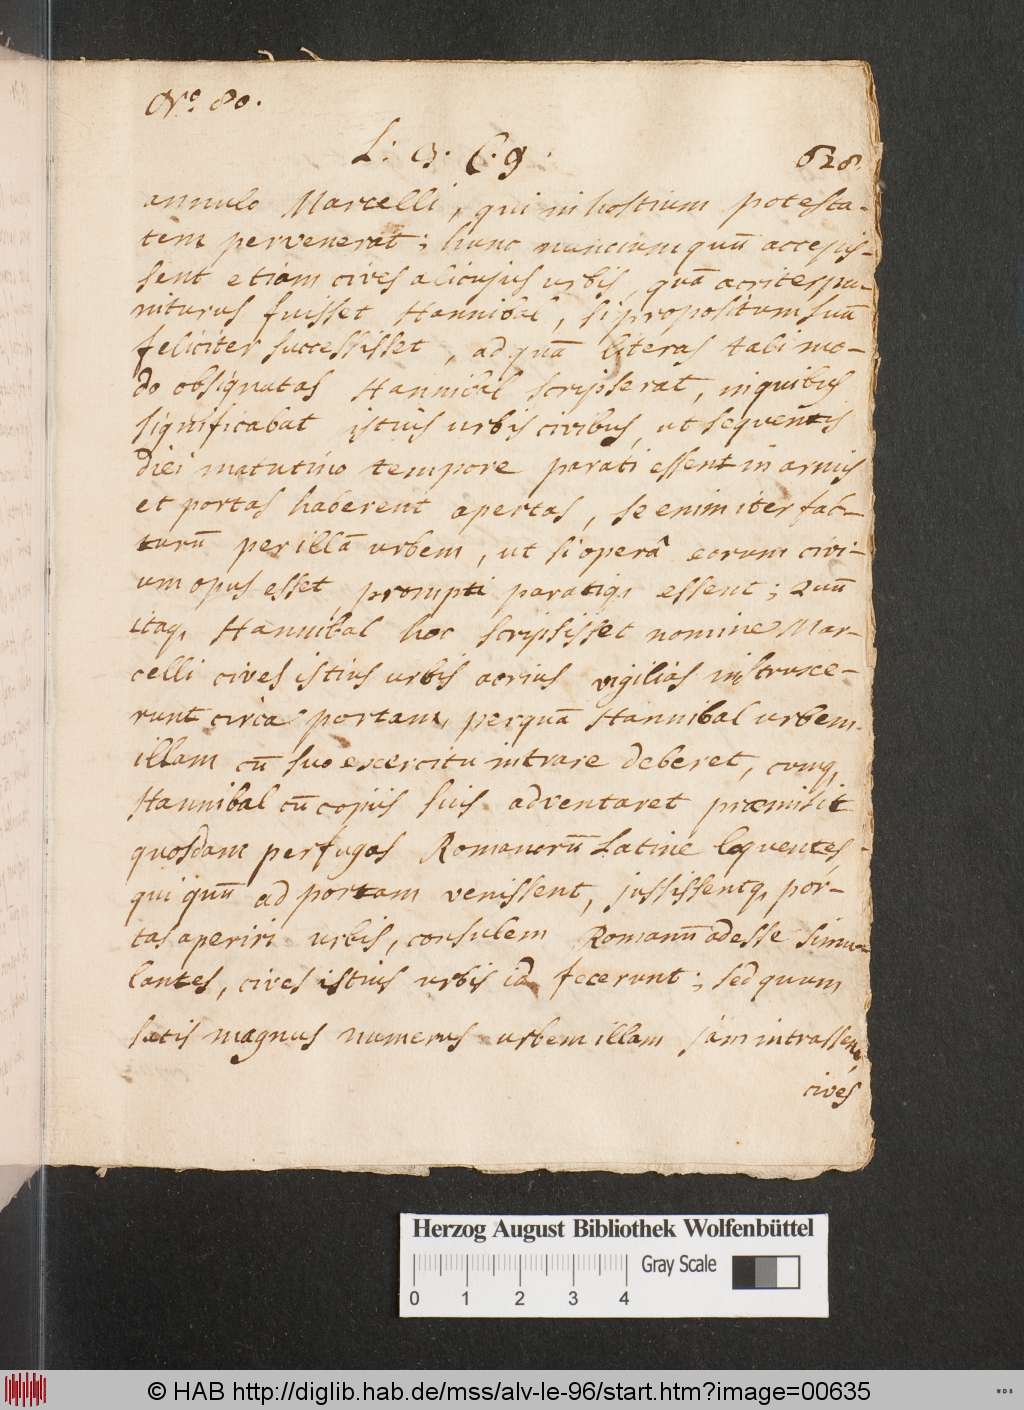 No. 80.
L: 3. C. 9. 628.
annulo Marcelli, qui in hostium potesta-
tem pervenerat; hunc nunciam quū accepis-
sent etiam cives alicujus urbis, quā acriter pu-
niturus fuisset Hannibal, si propositum suū
feliciter successisset, ad quā literas tali mo-
do obsignatas Hannibal scripserat, in quibus
significabat istius urbis civibus, ut sequentis
diei matutino tempore parati essent in armis
et portas haberent apertas, se enim iter fac-
turū per illā urbem, ut si operâ eorum civi-
um opus esset, prompti paratiq, essent; Quū
itaq, Hannibal hoc scripsisset nomine Mar-
celli cives istius urbis acrius vigilias instruxe-
runt circa portam, per quā Hannibal urbem
illam cū suo exercitu intrare deberet, cumq,
Hannibal cū copiis suis adventaret præmisit
quosdam perfugas Romanorū Latine loquentes,
qui quū ad portam venissent, jussissentq, por-
tas aperiri urbis, consulem Romanū adesse simu-
lantes, cives istius urbis id fecerunt; sed quum
satis magnus numerus urbem illam jam intrassent
cives
Herzog August Bibliothek Wolfenbüttel
Gray Scale
0 1 2 3 4
© HAB http://diglib.hab.de/mss/alv-le-96/start.htm?image=00635